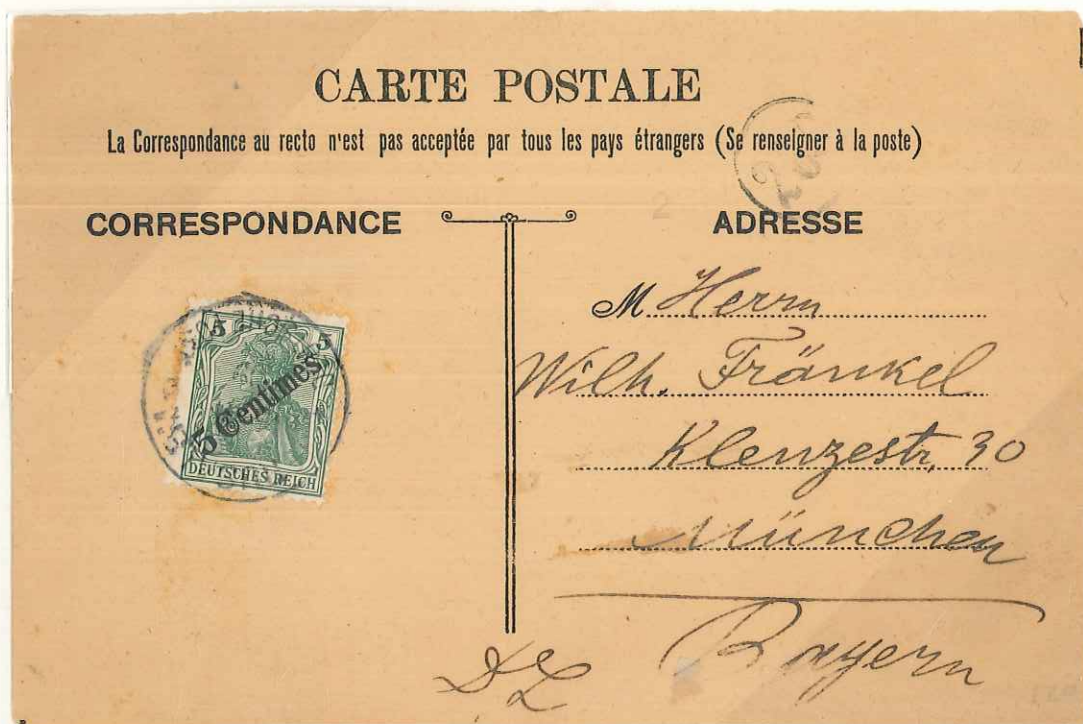 CARTE POSTALE
La Correspondance au recto n'est pas acceptée par tous les pays étrangers (Se renseigner à la poste)
CORRESPONDANCE
ADRESSE
5 5
5 Centimes
DEUTSCHES REICH
M Herrn
Wilh. Fränkel
Klenzestr. 30
München
Bayern